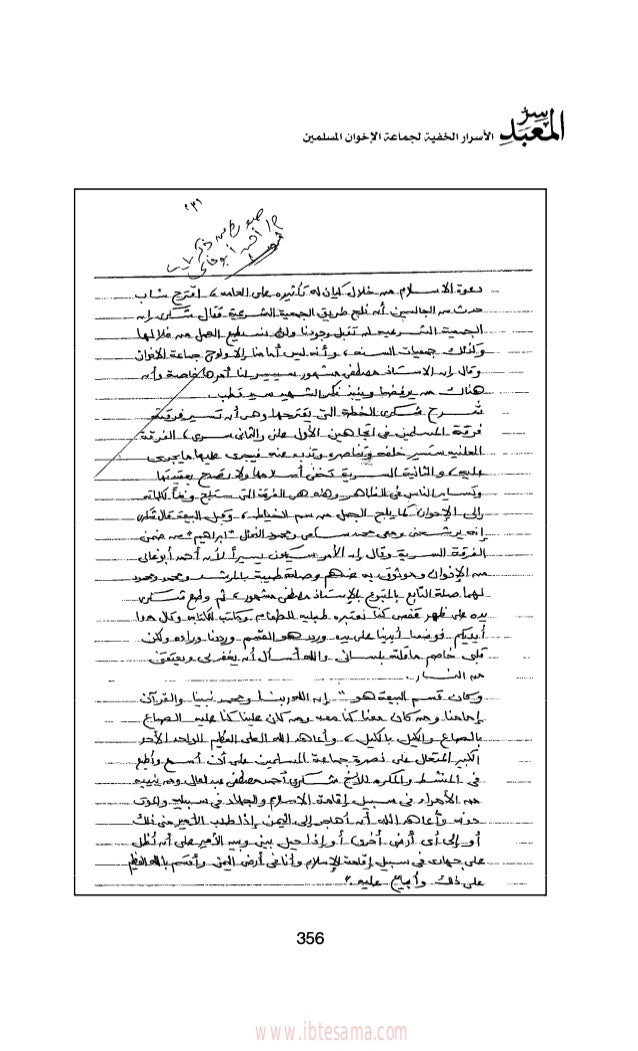 سر المعبد
الأسرار الخفية لجماعة الإخوان المسلمين
صورة من مذكرات
أبو غالى
دعوة الاسلام من خلال كيان له تأثيره على العامة، اقترح شاب
حدث من الجالسين أن نلج طريق الجمعية الشرعية فقال شكرى إن
الجمعية الشرعيه لن تقبل وجودنا ولن نستطيع العمل من خلالها
وكذلك جمعيات السنه، وأنه ليس أمامنا إلا ولوج جماعة الاخوان
وقال إن الاستاذ مصطفى مشهور سييسر لنا أمرها خاصة وأن
هناك من يرفضها وينبذ فكر الشهيد سيد قطب
شرح شكرى الخطة التى يقترحها وهى أن تسير فرقته
فرقة المسلمين فى اتجاهين الأول علنى والثانى سرى، الفرقة
العلنيه ستسير خلفه وتناصره وتذب عنه فيجرى عليها ما يجرى
عليه، والثانية السرية تخفى أسلامها ولا تصدح بعقيدتها
وكساير الناس فى الظاهر وهذه هى الفرقة التى ستلج وفقاً لكلماته
إلى الإخوان كما يلج الجمل من سم الخياط، وقبل البيعة قال شكرى
إنه يرشحنى ومحمد سامى ومحمود "ابراهيم" من ضمن
الفرقة السرية وقال إن الأمر سيكون يسيراً لأن أحمد أبو غالى
من الإخوان وموثوق به عندهم وصلته طيبة بالمرشد ومحمد ومحمود
لهما صلة التابع بالمتبوع بالاستاذ مصطفى مشهور، ثم وضع شكرى
يده على ظهر قفص كنا نعتبره طبليه للطعام ومكتب للكتابه وقال هدوا
أيديكم فوضعنا أيدينا على يده وردد هو القسم ورددنا وراءه ولكن
قلبى خاصم ما قلته بلسانى والله أسأل أن يغفر لى ويعتقنى
من النار.
وكان قسم البيعة هو "إن الله ربنا ومحمد نبينا والقرآن
إمامنا ومن كان معنا كنا معه ومن كان علينا كنا عليه الصاع
بالصاع والكيل بالكيل، وأعاهد الله العلى العظيم الواحد الأحد
الكبير المتعال على نصرة جماعة المسلمين على أن أسمع وأطيع
فى المنشط والمكره للأخ شكرى أحمد مصطفى عبد العال ومن ينيبه
من الأمراء فى سبيل إقامة الإسلام والجهاد فى سبيله والموت
دونه وأعاهد الله أن أهاجر إلى اليمن إذا طلب الأمير منى ذلك
أو إلى أى أرض أخرى أو إذا حيل بينى وبين الأمير على أن أظل
على جهادى فى سبيل إقامة الإسلام وأنا فى أرض اليمن وأقسم بالله العظيم
على ذلك وأبايع عليه."
356
www.ibtesama.com